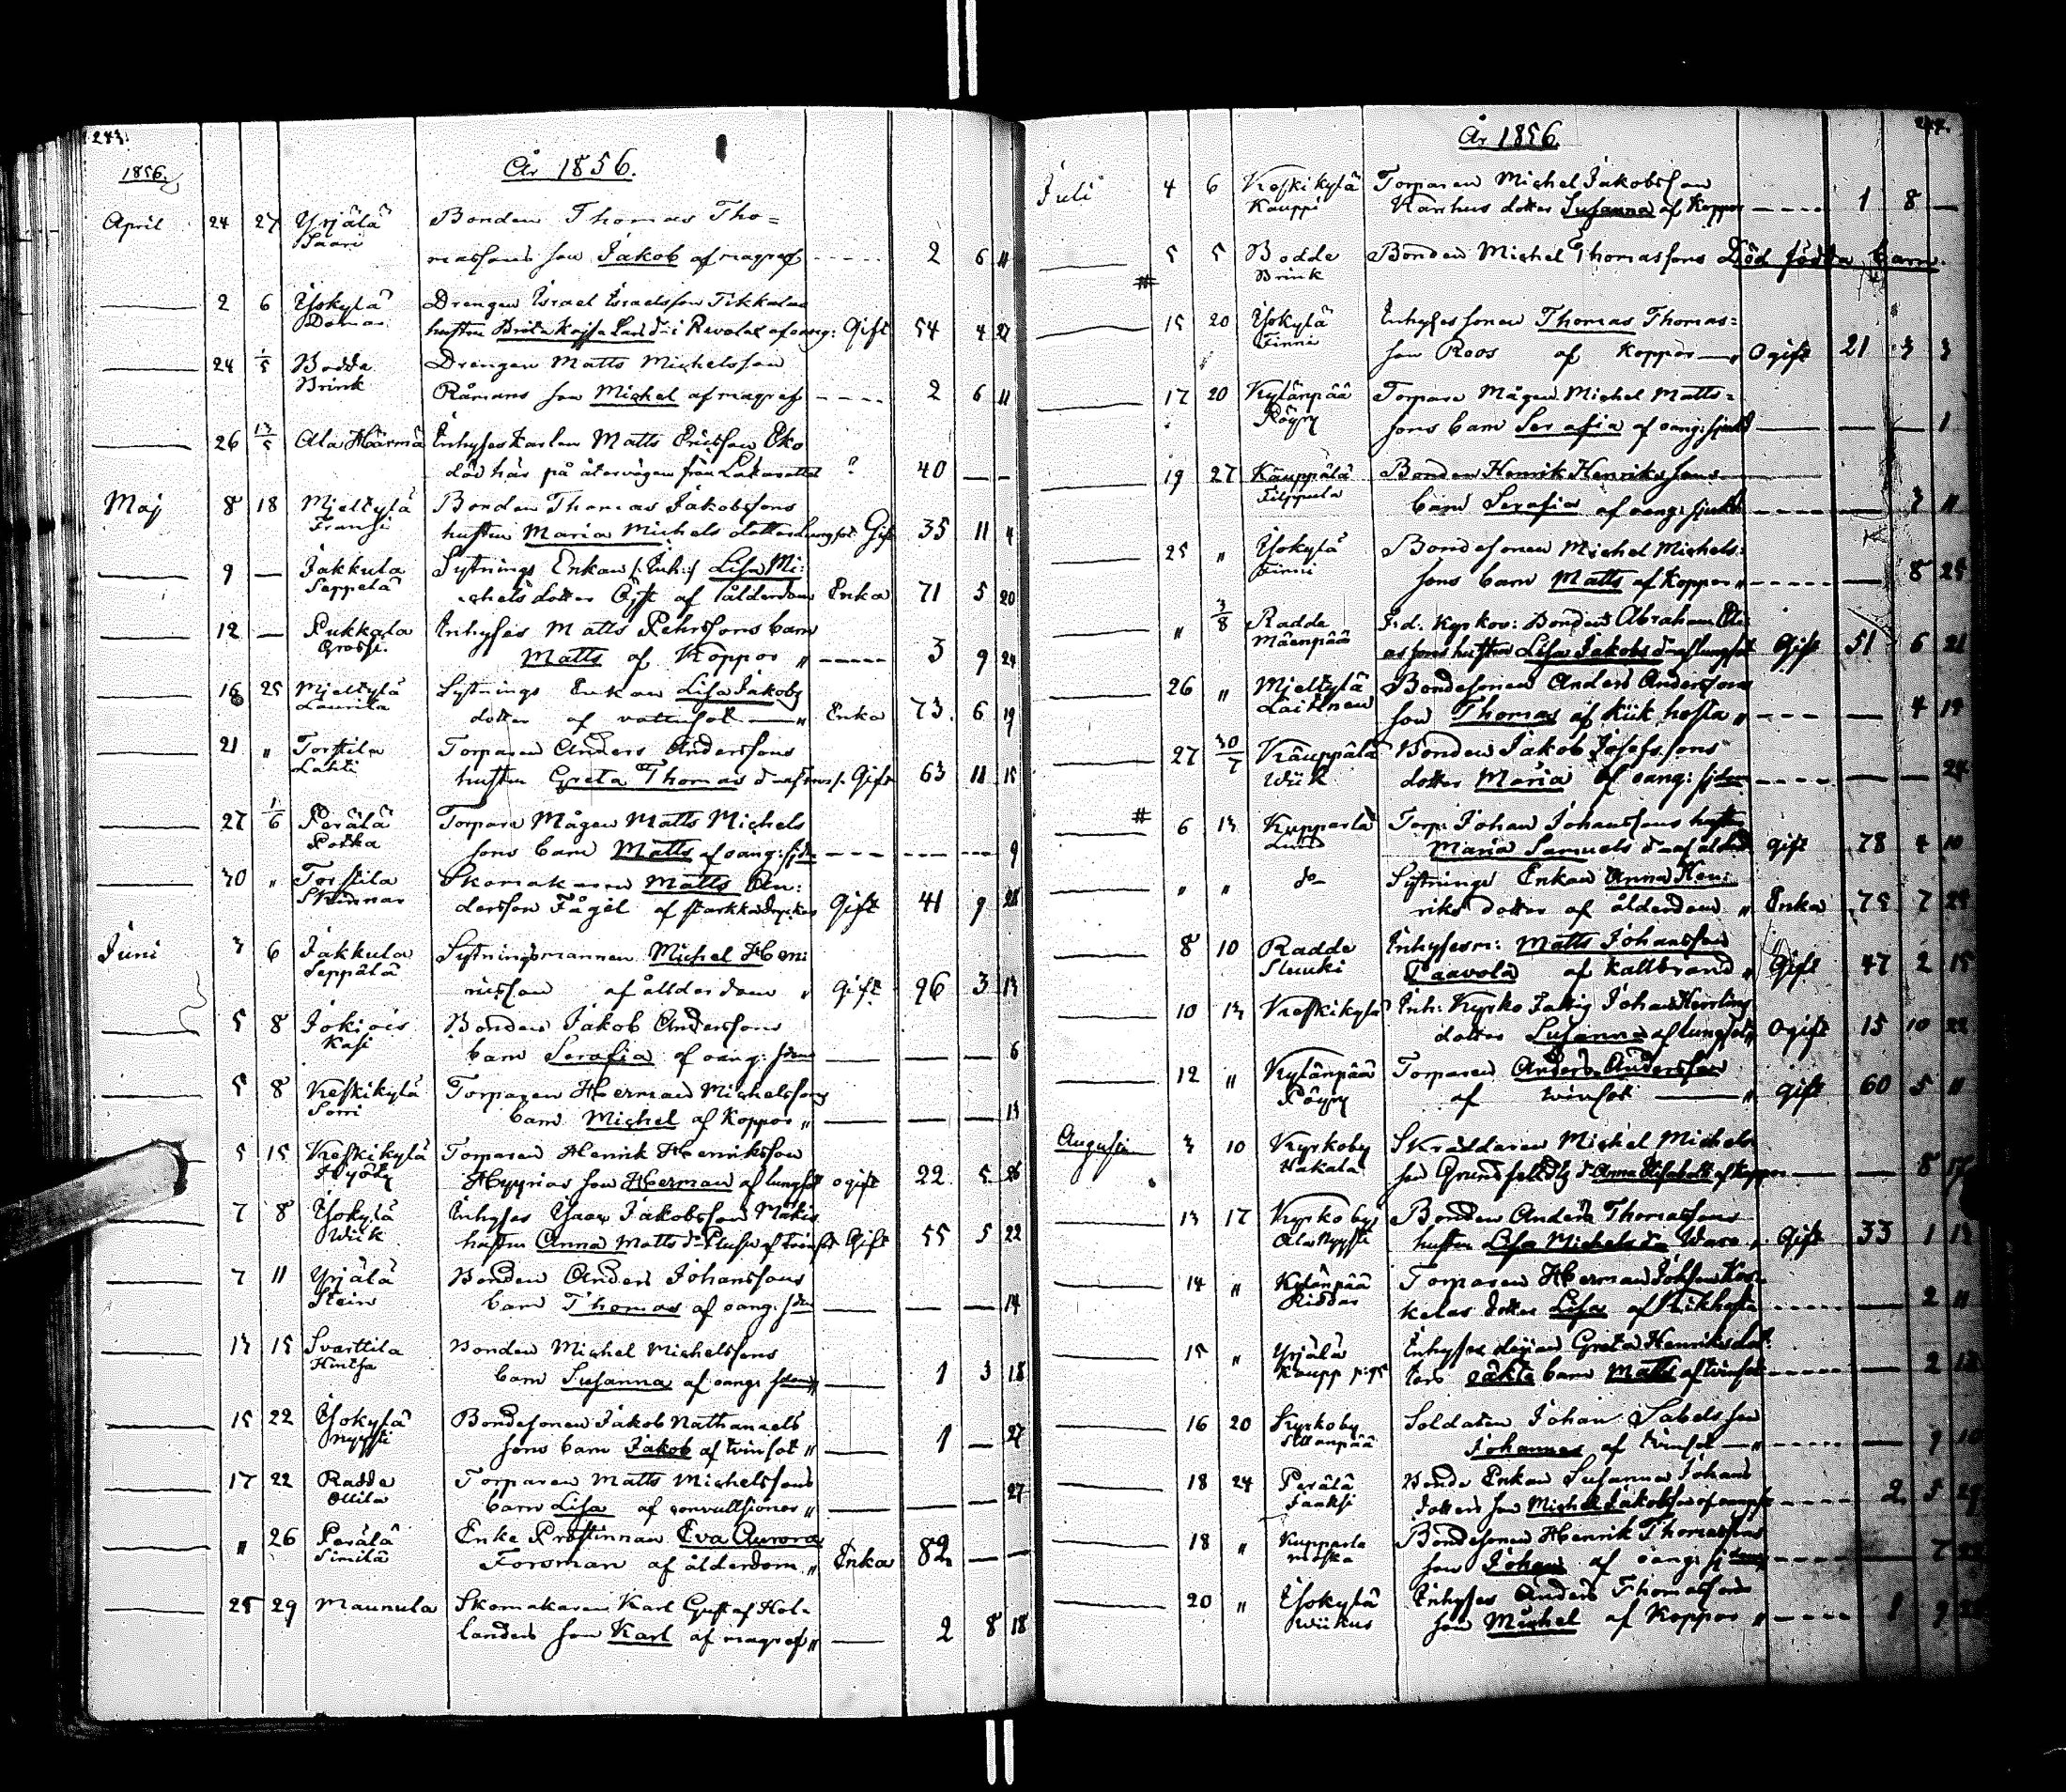 243.
1856.
År 1856.
April 24 27 Yrjälä Bonden Thomas Tho=
Saari massons son Jakob af magref ----- 2 6 11
—— 2 6 Ysokylä Drengen Israel Israelsson Tikkalas
Domar hustru Brita Kajsa i Revolax af oang: Gift 54 4 27
—— 24 1/5 Bodda Drengen Matts Michelsson
Brink Råmans son Michel af magref ---- 2 6 11
—— 26 13/5 Ala Härmä Inhyses Karlen Matts Ericsson Eko
död här på återvägen från Lakarettet ? 40 — —
Maj 8 18 Mjelkylä Bonden Thomas Jakobssons
Fransi hustru Maria Michels dotter Lungsot Gift 35 11 4
—— 9 — Jakkula Sytnings Enkan /: Inh: / Lisa Mi:
Seppelä chels dotter af ålderdom Enka 71 5 20
—— 12 — Pukkala Inhyses Matts Pehrssons barn
Grossi Matts af Koppor „ ----- 3 9 24
—— 16 25 Mjelkylä Sytnings Enkan Lisa Jakobs
Laurila dotter af vattusot —„ Enka 73 6 19
—— 21 „ Torstila Torparen Anders Anderssons
Lahti hustru Greta Thomas d— Gift 63 11 15
—— 27 1/6 Perälä Torpare Mågen Matts Michels
Potka sons barn Matts af oang: sjdm --- --- --- 9
—— 30 „ Torstila Skomakaren Matts An:
Skinnar dersson Fågel af starkka drycker Gift 41 9 28
Juni 3 6 Jakkula Sytningsmannen Michel Hen:
Seppälä ricsson af ålderdom „ Gift 96 3 13
—— 5 8 Jokiois Bonden Jakob Anderssons
Kasi barn Serafia af oang: sjdom —— — — 6
—— 5 8 Keskikylä Torparen Herman Michelssons
Sorri barn Michel af Koppor „ —— — — 13
—— 5 15 Keskikylä Torparen Henrik Henriksson
Hyyrias son Herman af lungsot ogift 22 5 26
—— 7 8 Ysokylä Inhyses Isaac Jakobsson Mäkis
Wiik hustru Anna Matts d— af tvinsot Gift 55 5 22
—— 7 11 Yrjälä Bonden Anders Johanssons
Stein barn Thomas af oang: sjdom —— — — 14
—— 13 15 Svarttila Bonden Michel Michelssons
Hintsa barn Susanna af oang: sjdom „ —— 1 3 18
—— 15 22 Ysokylä Bondesonen Jakob Nathanaels
Nyysti sons barn Jakob af tvinsot „ —— 1 — 27
—— 17 22 Radde Torparen Matts Michelssons
Ollila barn Lisa af convultsioner „ —— — — 27
—— „ 26 Perälä Enke Prostinnan Eva Aurora
Simila Forsman af ålderdom „ Enka 82 — —
—— 25 29 Maunula Skomakaren Karl Gustaf Hol-
landers son Karl af magref „ —— 2 8 18
244.
År 1856.
Juli 4 6 Keskikylä Torparen Michel Jakobsson
Kauppi Karhus dotter Susanna af Koppor ---- 1 8 —
—— 5 5 Bodde Bonden Michel Thomassons Död födda barn.
# Brink
—— 15 20 Ysokylä Inhyses sonen Thomas Thomas=
Finni son Roos af Koppor —„ Ogift 21 3 3
—— 17 20 Kylänpää Torpare Mågen Michel Matts=
Pöyry sons barn Serafia af oang: sjukd —— — — 1
—— 19 27 Käuppälä Bonden Henrik Henrikssons
Filppula barn Serafia af oang: sjukd ---- — 3 11
—— 25 „ Ysokylä Bondesonen Michel Michels:
Finni sons barn Matts af Koppor „ ---- — 8 25
—— „ 3/8 Radde F.d. Kyrkov: Bonden Abraham
Mäenpää hustru Lisa Jakobs d— af lungsot Gift 51 6 21
—— 26 „ Mjelkylä Bondesonen Anders Anderssons
Laitinen son Thomas af Kikhosta „ ---- — 4 19
—— 27 30/7 Käuppälä Bonden Jakob Josefssons
Wiik dotter Maria af oang: sjdom ---- — — 24
# —— 6 13 Kupparla Torp: Johan Johanssons hustru
Lund Maria Samuels d— af ålderd Gift 78 4 10
—— „ „ do Sytnings Enkan Anna Hen:
riks dotter af ålderdom „ Enka 75 7 29
—— 8 10 Radde Inhysesm: Matts Johansson
Slunki Paavola af Kallbrand „ Gift 47 2 15
—— 10 13 Keskikylä Inh: Kyrko Fattig Johan
dotter Susanna af lungsot „ Ogift 15 10 22
—— 12 „ Kylänpää Torparen Anders Andersson
Pöyry af tvinsot —— „ Gift 60 5 11
Augusti 3 10 Kyrkoby Skräddaren Michel Michels
Hakala son d— Anna Elisabeth af Koppor —— — 8 17
—— 13 17 Kyrkoby Bonden Anders Thomassons
Ala Nyysti hustru Lisa Michels d— Wasa „ Gift 33 1 13
—— 14 „ Kylänpää Torparen Herman Johsson Kos-
Riddar kelas dotter Lisa af Kikhosta ---- — 2 11
—— 15 „ Yrjälä Inhyses pigan Greta Henriksdot:
Kaupp ters oäkta barn Matts af tvinsot ---- — 2 12
—— 16 20 Kyrkoby Soldaten Johan Sabels son
Johannes af tvinsot —„ ---- — 9 10
—— 18 24 Perälä Bonde Enkan Susanna Johans
Jaaksi dotters son Michel Jakobsson ---- 2 5 29
—— 18 „ Kupparla Bondesonen Henrik Thomassons
son Johan af oang: sjdom ---- — 7 22
—— 20 „ Ysokylä Inhyses Anders Thomassons
Wiikus son Michel af Koppor „ ---- 1 9